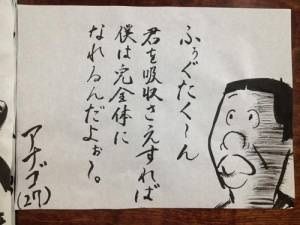 ふぅぐたく〜ん
君を吸収さえすれば
僕は完全体に
なれるんだよぉ〜。
アナゴ(27)